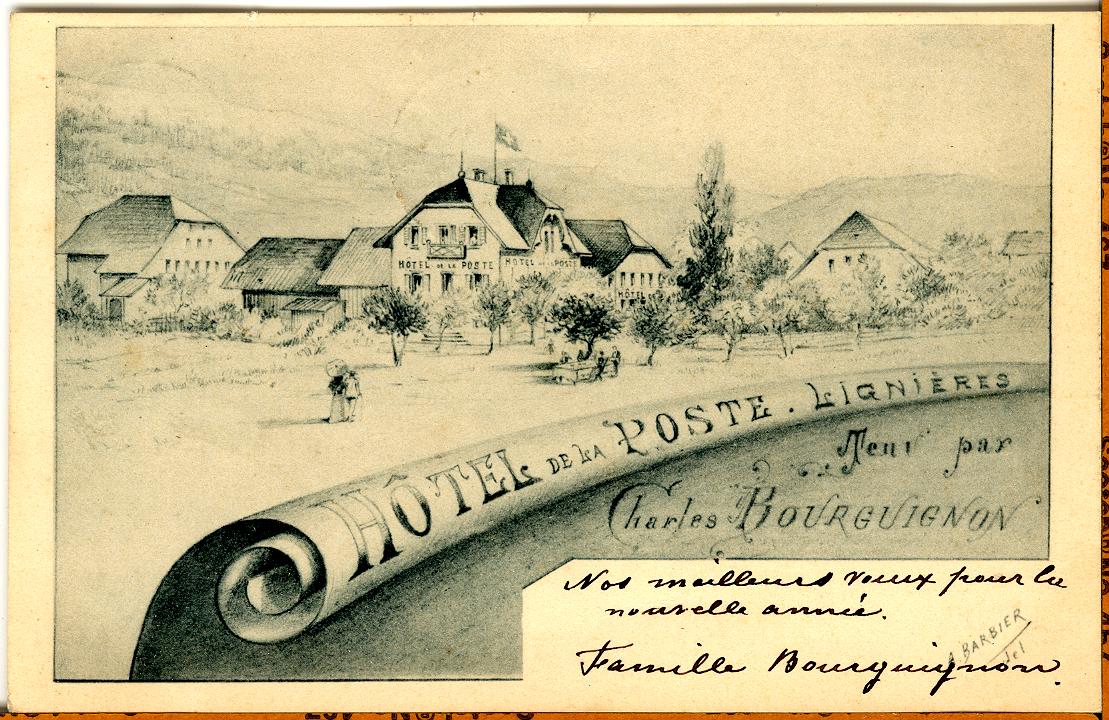 HÔTEL DE LA POSTE
HÔTEL DE LA POSTE
HÔTEL
HÔTEL DE LA POSTE . LIGNIÈRES
Tenu par
Charles BOURGUIGNON
Nos meilleurs vœux pour la
nouvelle année.
A. BARBIER
del
Famille Bourguignon.